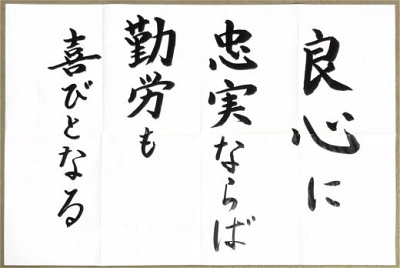 良心に
忠実ならば
勤労も
喜びとなる